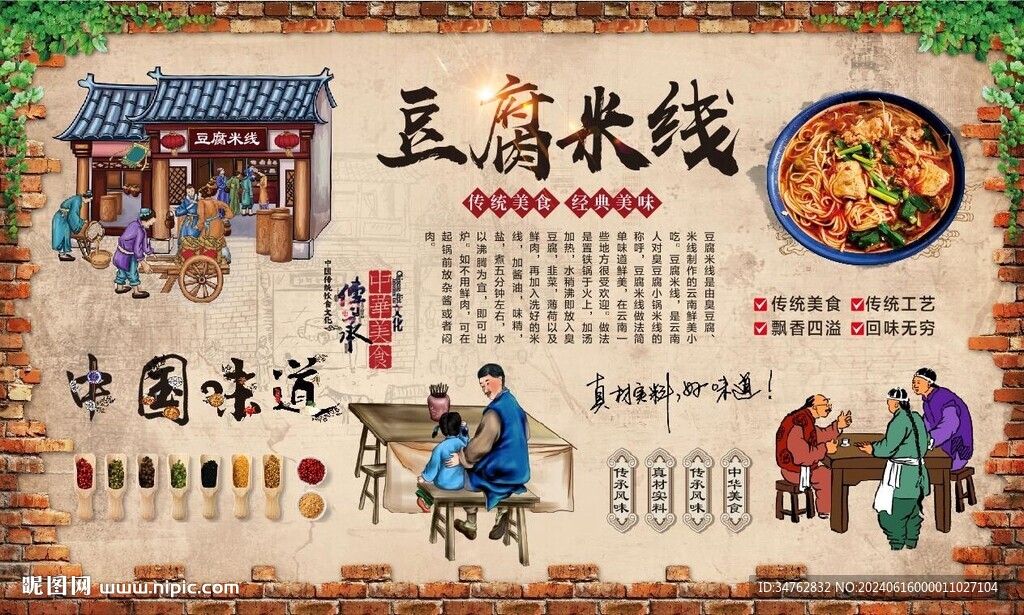 豆腐米线
豆腐米线
传统美食 经典美味
豆腐米线是由臭豆腐、
米线制作的云南鲜美小
吃。豆腐米线，是云南
人对臭豆腐小锅米线的
称呼，豆腐米线做法简
单味道鲜美，在云南一
些地方很受欢迎。做法
是置铁锅于火上，加汤
加热，水稍沸即放入臭
豆腐，韭菜，薄荷以及
鲜肉，再加入洗好的米
线，加酱油，味精，
盐，煮五分钟左右，水
以沸腾为宜，即可出
炉。如不用鲜肉，可在
起锅前放杂酱或者焖
肉。
传统美食 传统工艺
飘香四溢 回味无穷
中国传统饮食文化
传承
中華美食
文化
中国味道
真材实料,好味道!
传承风味
真材实料
传承风味
中华美食
昵图网 www.nipic.com
ID:34762832 NO:20240616000011027104